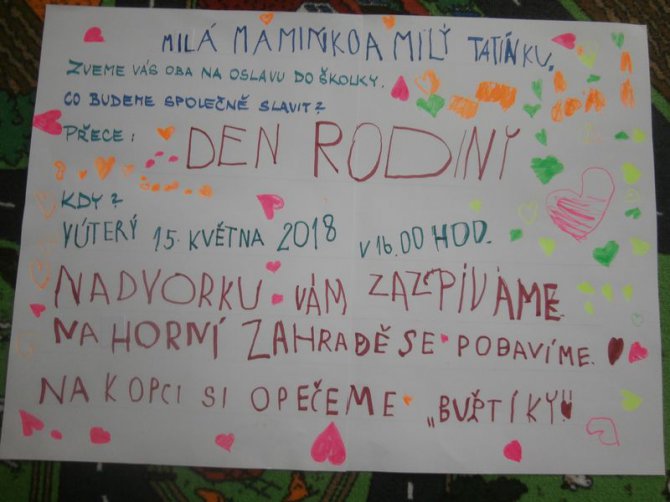 MILÁ MAMINKO A MILÝ TATÍNKU,
ZVEME VÁS OBA NA OSLAVU DO ŠKOLKY.
CO BUDEME SPOLEČNĚ SLAVIT?
PŘECE: DEN RODINY
KDY?
VÚTERÝ 15. KVĚTNA 2018 V 16.00 HOD.
NADVORKU VÁM ZAZPÍVÁME
NA HORNÍ ZAHRADĚ SE POBAVÍME.
NA KOPCI SI OPEČEME „BUŘTÍKY!!